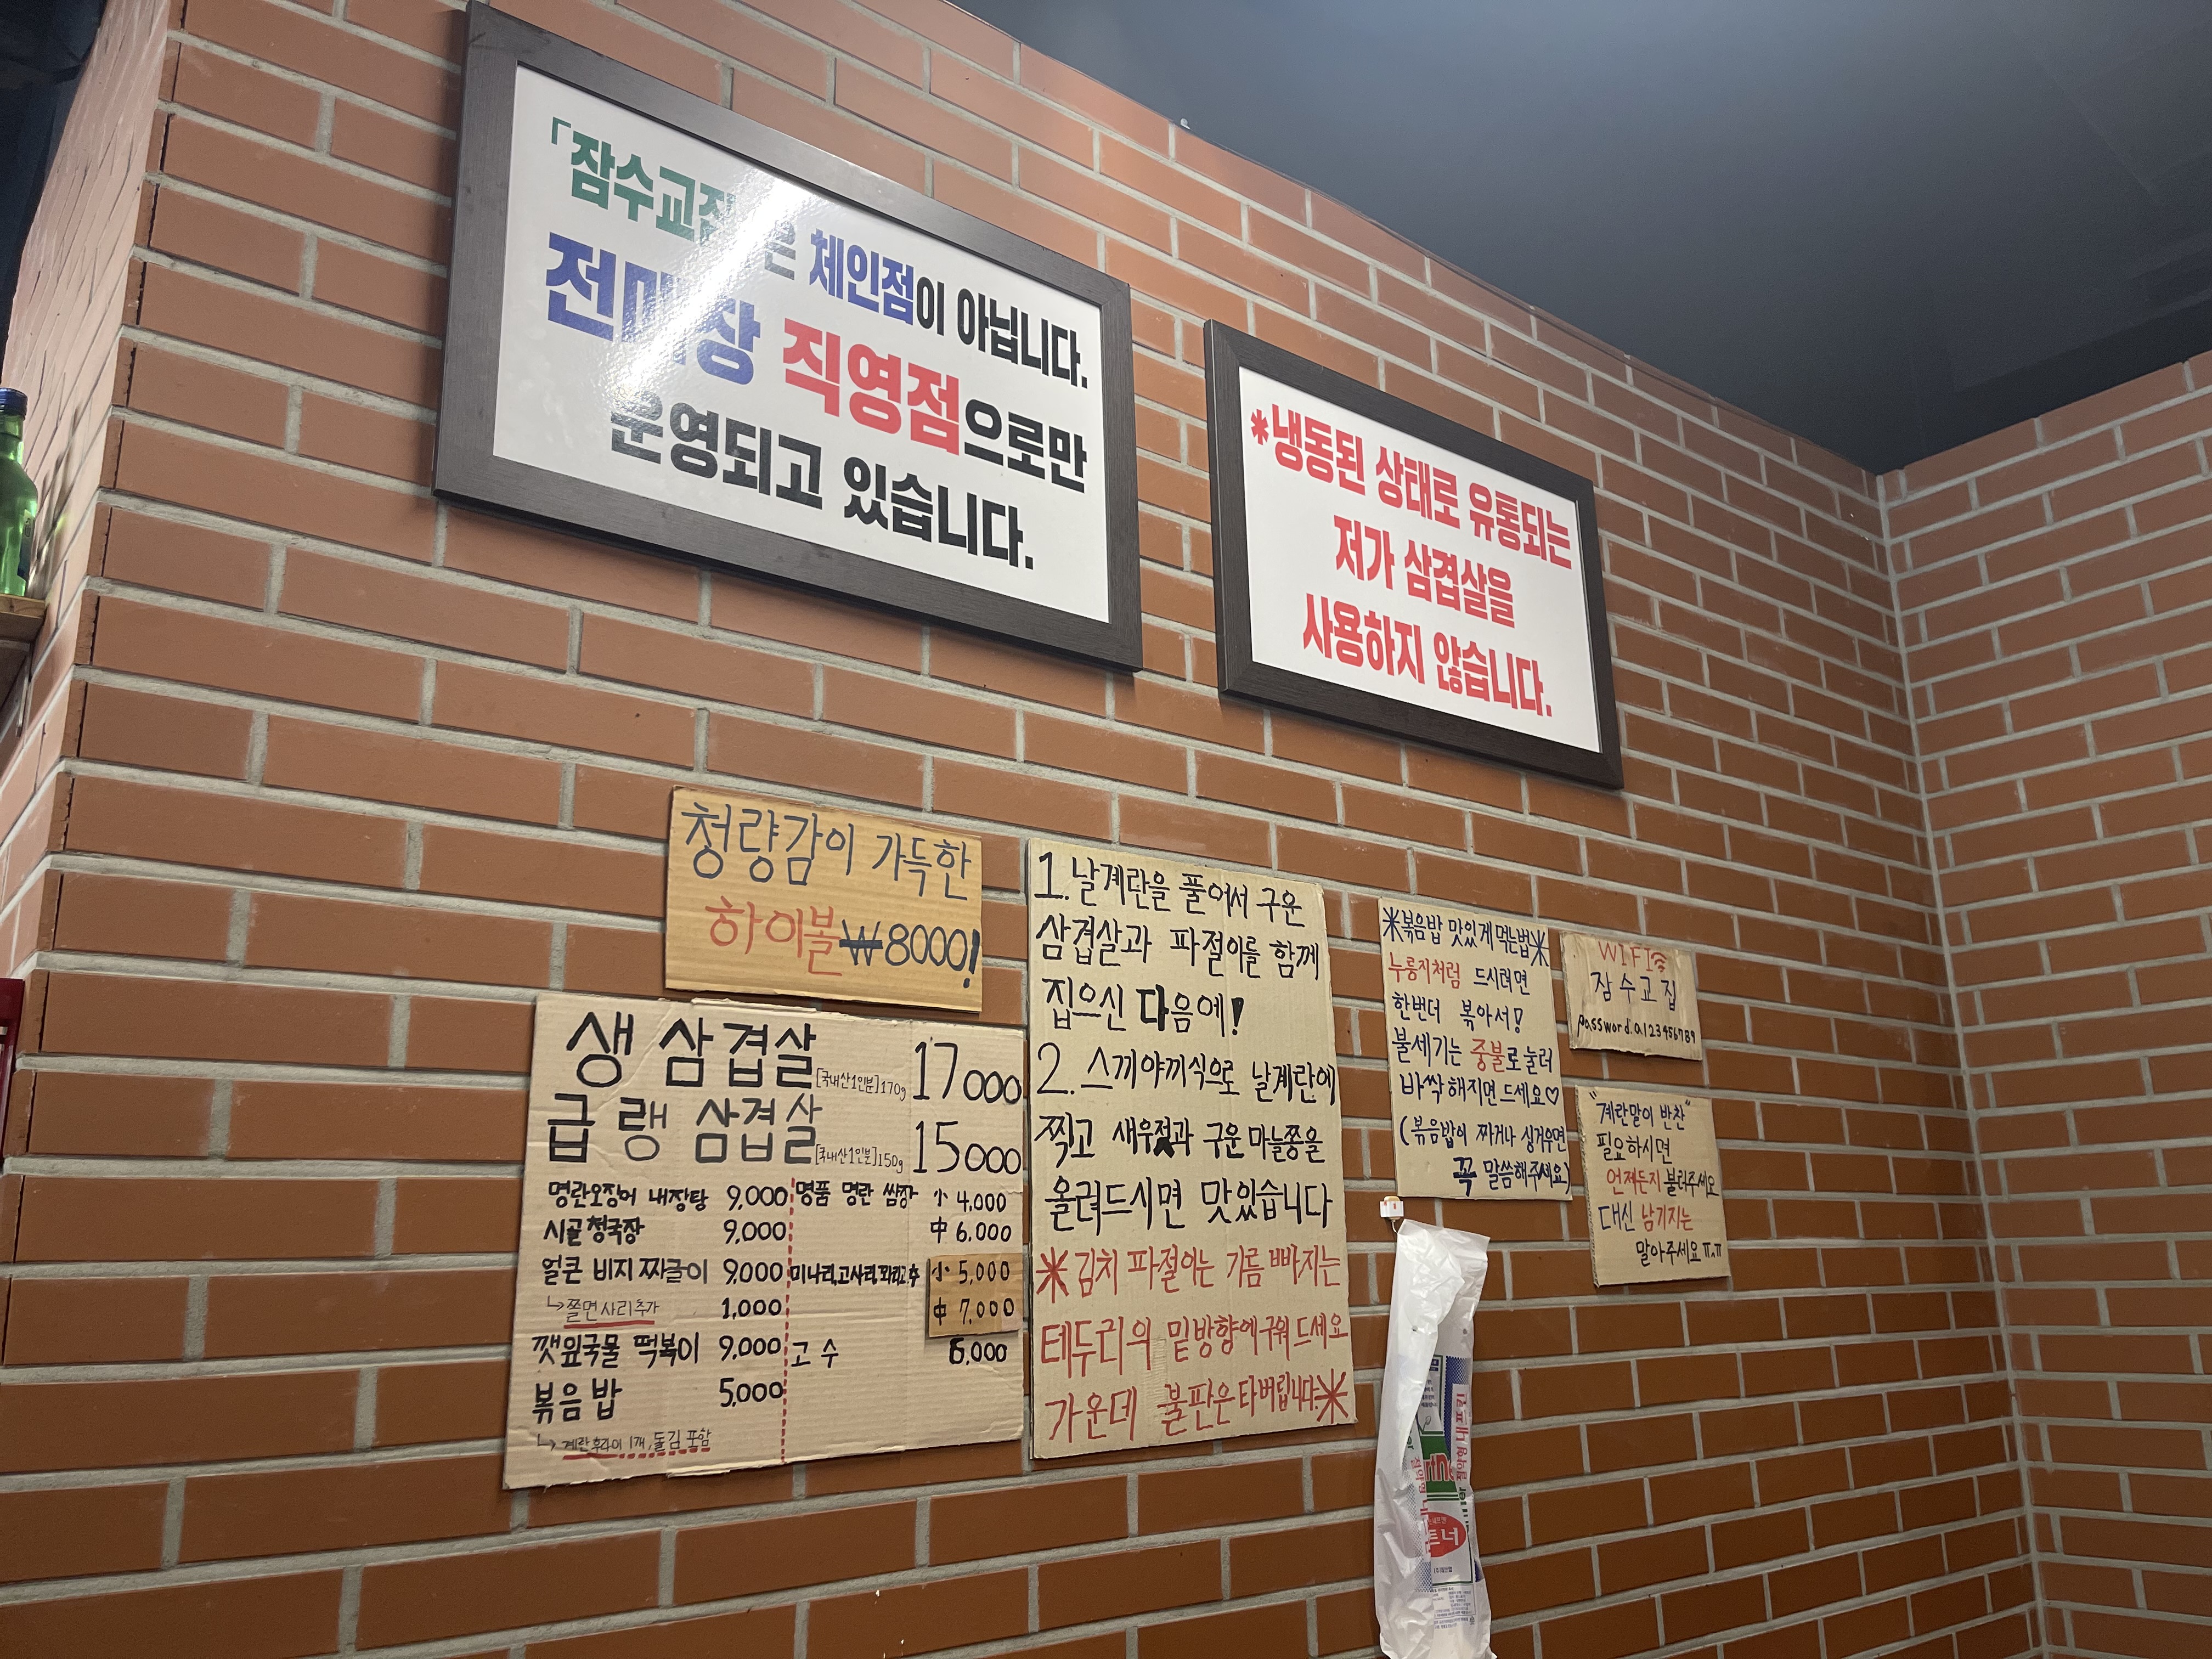 「잠수교집」은 체인점이 아닙니다.
전매장 직영점으로만
운영되고 있습니다.
*냉동된 상태로 유통되는
저가 삼겹살을
사용하지 않습니다.
청량감이 가득한
하이볼 ₩8000!
생 삼겹살 [국내산1인분]170g 17000
급랭 삼겹살 [국내산1인분]150g 15000
명란오징어 내장탕 9,000
시골청국장 9,000
얼큰 비지 짜글이 9,000
↳쫄면사리추가 1,000
깻잎국물 떡볶이 9,000
볶음밥 5,000
↳계란후라이 1개, 돌김 포함
명품 명란 쌈장 小 4,000
中 6,000
미나리,고사리,꽈리고추 小 5,000
中 7,000
고수 6,000
1. 날계란을 풀어서 구운
삼겹살과 파절이를 함께
집으신 다음에!
2. 스끼야끼식으로 날계란에
찍고 새우젓과 구운마늘쫑을
올려드시면 맛있습니다
※김치 파절이는 기름 빠지는
테두리의 밑방향에구워드세요
가운데 불판은타버립니다.※
※볶음밥 맛있게먹는법※
누룽지처럼 드시려면
한번더 볶아서!
불세기는 중불로눌러
바싹해지면드세요♡
(볶음밥이 짜거나 싱거우면
꼭 말씀해주세요)
WIFI
잠수교집
password.a123456789
"계란말이 반찬"
필요하시면
언제든지 불러주세요
대신 남기지는
말아주세요ㅠ.ㅠ